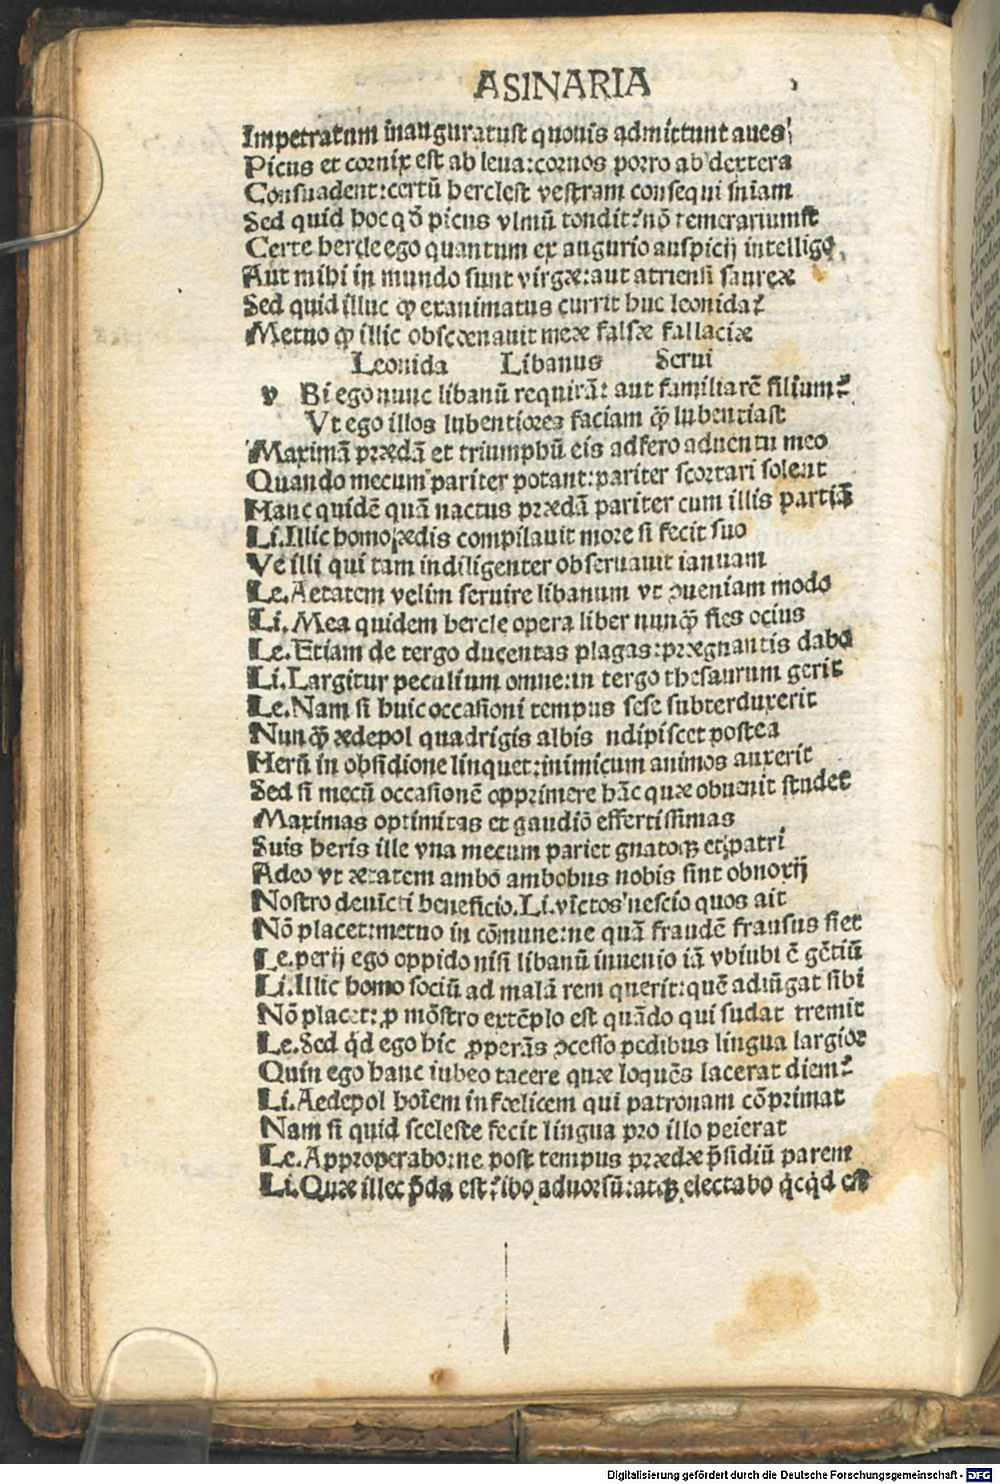 ASINARIA
Impetratum inauguratust quouis admittunt aues
Picus et cornix est ab leua:coruos porro ab dextera
Consuadent:certū hercle est vestram consequi sniam
Sed quid hoc qđ picus vlmū tondit:nō temerariumst
Certe hercle ego quantum ex augurio auspicij intelligo,
Aut mihi in mundo sunt virgæ:aut atriensi saureæ
Sed quid illuc ꝙ exanimatus currit huc leonida?
Metuo ꝙ illic obscœnauit meæ falsæ fallaciæ
Leonida Libanus Serui
v Bi ego nunc libanū requirā: aut familiarē filium?
Vt ego illos lubentiores faciam ꝙ̄ lubentiast
Maximā prædā et triumphū eis adfero aduentu meo
Quando mecum pariter potant:pariter scortari solent
Hanc quidē quā nactus prædā pariter cum illis partiā
Li.Illic homo ædis compilauit more si fecit suo
Ve illi qui tam indiligenter obseruauit ianuam
Le.Aetatem velim seruire libanum vt ꝯueniam modo
Li.Mea quidem hercle opera liber nunꝙ̄ fies ocius
Le.Etiam de tergo ducentas plagas:prægnantis dabo
Li.Largitur peculium omne:in tergo thesaurum gerit
Le.Nam si huic occasioni tempus sese subterduxerit
Nunꝙ̄ ædepol quadrigis albis ndipiscet postea
Herū in obsidione linquet:inimicum animos auxerit
Sed si mecū occasionē opprimere hāc quæ obuenit studet
Maximas optimitas et gaudiō effertissimas
Suis heris ille vna mecum pariet gnatoqꝫ et patri
Adeo vt ætatem ambo ambobus nobis sint obnoxij
Nostro deuīcti beneficio.Li.vīctos nescio quos ait
Nō placet:metuo in cōmune:ne quā fraudē frausus siet
Le.perij ego oppido nisi libanū inuenio iā vbiubi ē gētiū
Li.Illic homo sociū ad malā rem querit:quē adiūgat sibi
Nō placet:ꝓ mōstro extēplo est quādo qui sudat tremit
Le.Sed qđ ego hic ꝓperās ꝯcesso pedibus lingua largior
Quin ego hanc iubeo tacere quæ loquēs lacerat diem?
Li.Aedepol hoīem infœlicem qui patronam cōprimat
Nam si quid sceleste fecit lingua pro illo peierat
Le.Approperabo:ne post tempus prædæ p̄sidiū parem
Li.Quæ illec p̄da est?ibo aduorsū:atqꝫ electabo qͥcqͥd est
Digitalisierung gefördert durch die Deutsche Forschungsgemeinschaft - DFG